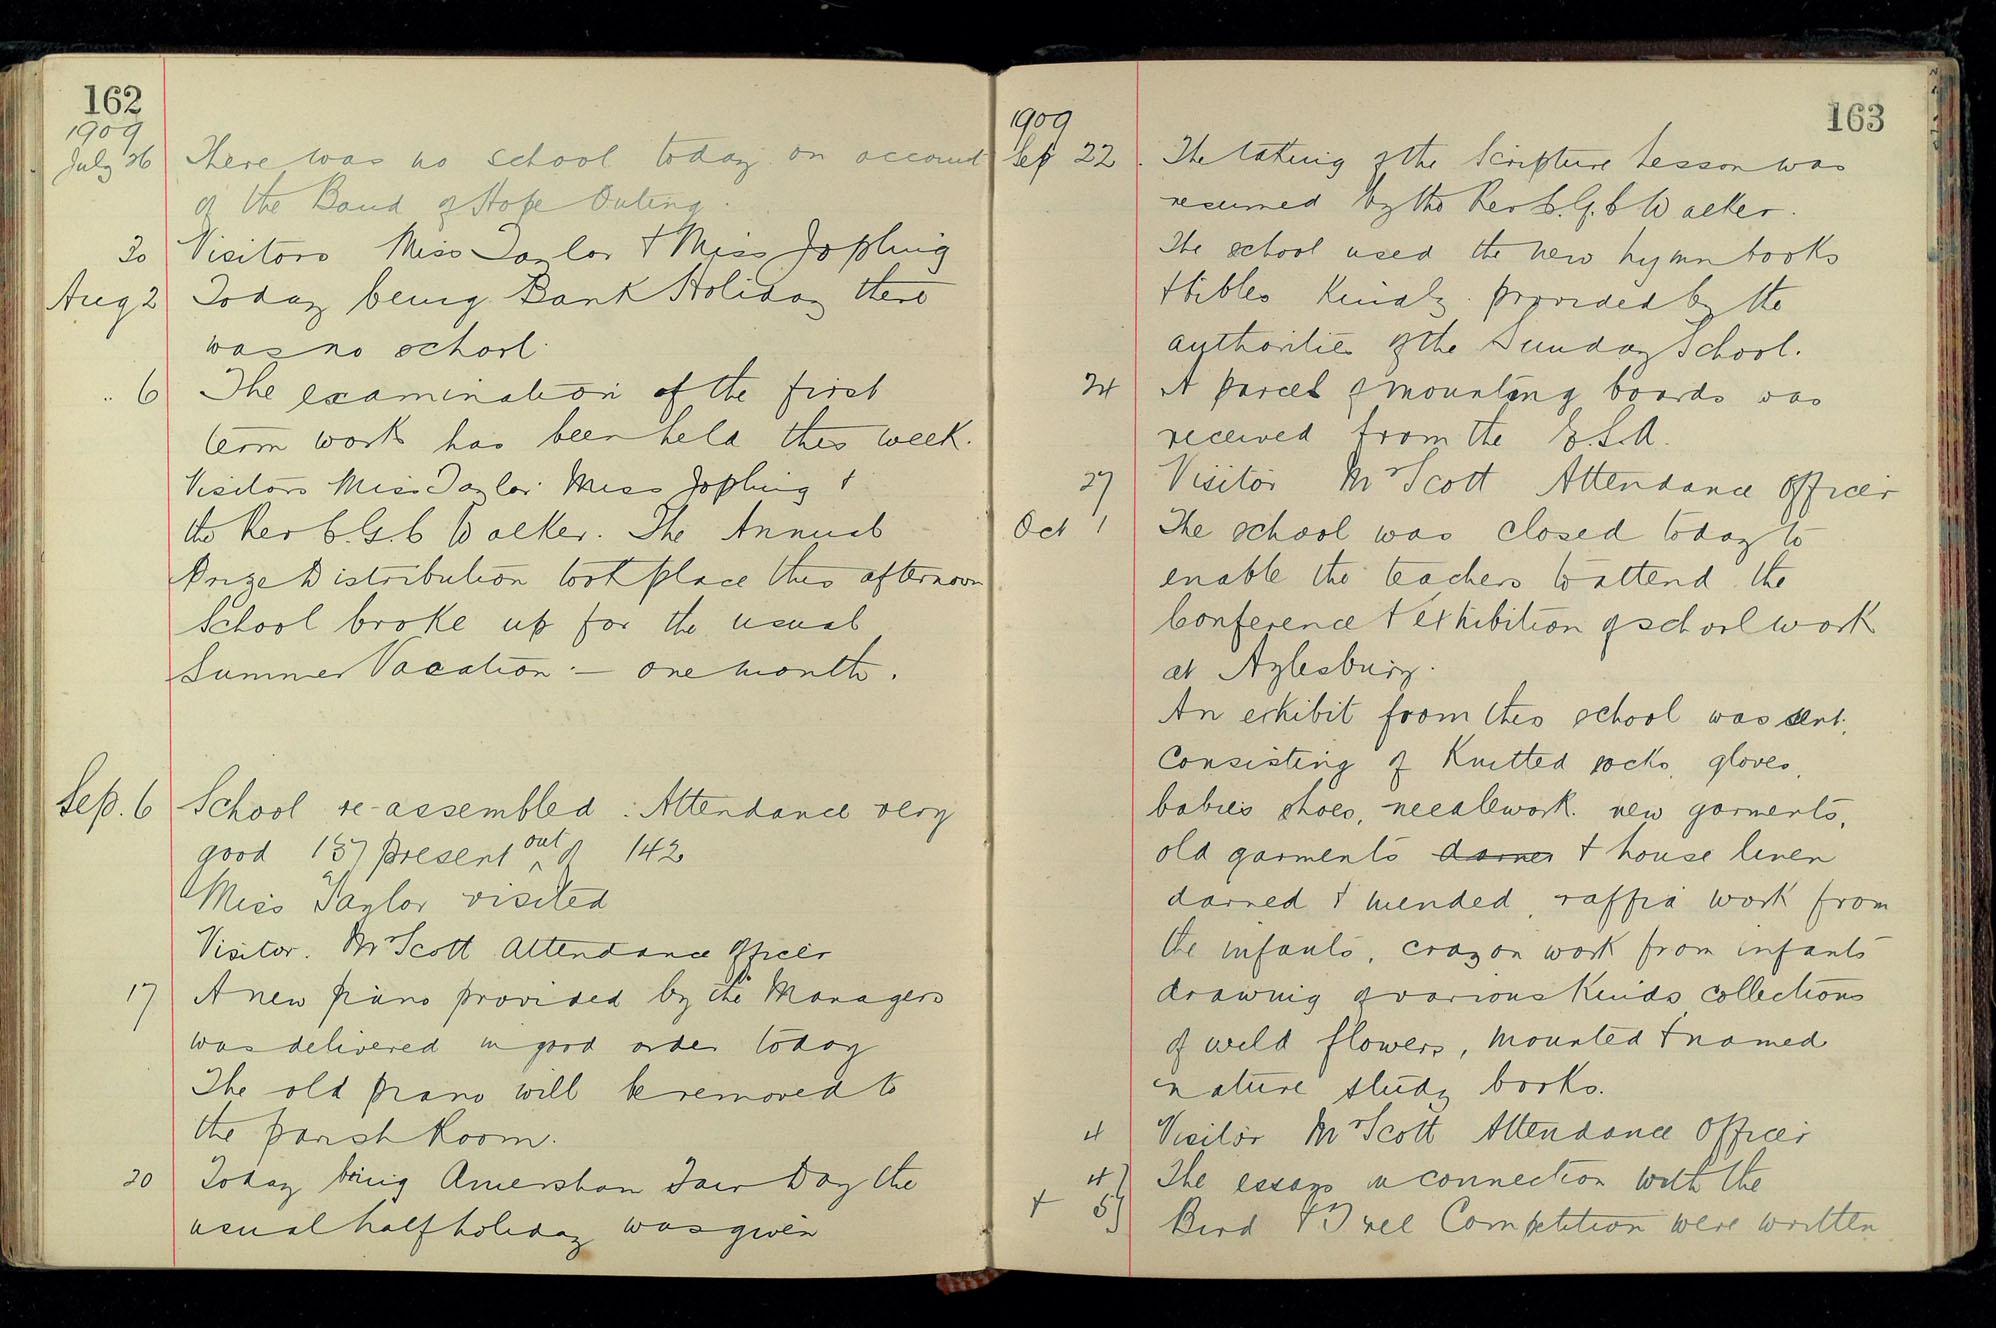 162
1909
July 26 There was no school today on account
of the Band of Hope Outing.
30 Visitors Miss Taylor + Miss Jopling
Aug 2 Today being Bank Holiday there
was no school.
" 6 The examination of the first
term work has been held this week.
Visitors Miss Taylor Miss Jopling +
the Rev C.G.C Walker. The Annual
Prize Distribution took place this afternoon
School broke up for the usual
Summer Vacation. — one month.
Sep. 6 School re-assembled : Attendance very
good 137 present out of 142
Miss Taylor visited
Visitor. Mr Scott Attendance Officer
17 A new piano provided by the Managers
was delivered in good order today
The old piano will be removed to
the parish Room.
20 Today being Amersham Fair Day the
usual half holiday was given
163
1909
Sep 22. The taking of the Scripture Lesson was
resumed by the Rev C.G.C Walker.
The school used the new hymn books
+ bibles kindly provided by the
authorities of the Sunday School.
24 A parcel of mounting boards was
received from the E.S.A.
27 Visitor Mr Scott Attendance Officer
Oct 1 The school was closed today to
enable the teachers to attend the
Conference + exhibition of school work
at Aylesbury.
An exhibit from this school was sent,
Consisting of Knitted socks, gloves,
babies shoes, needlework. new garments,
old garments darner + house linen
darned + mended, raffia work from
the infants, crayon work from infants
drawing of various kinds, collections
of wild flowers, mounted + named
nature study books.
4 Visitor Mr Scott Attendance Officer
4} The essays in connection with the
+ 5} Bird + Tree Competition were written